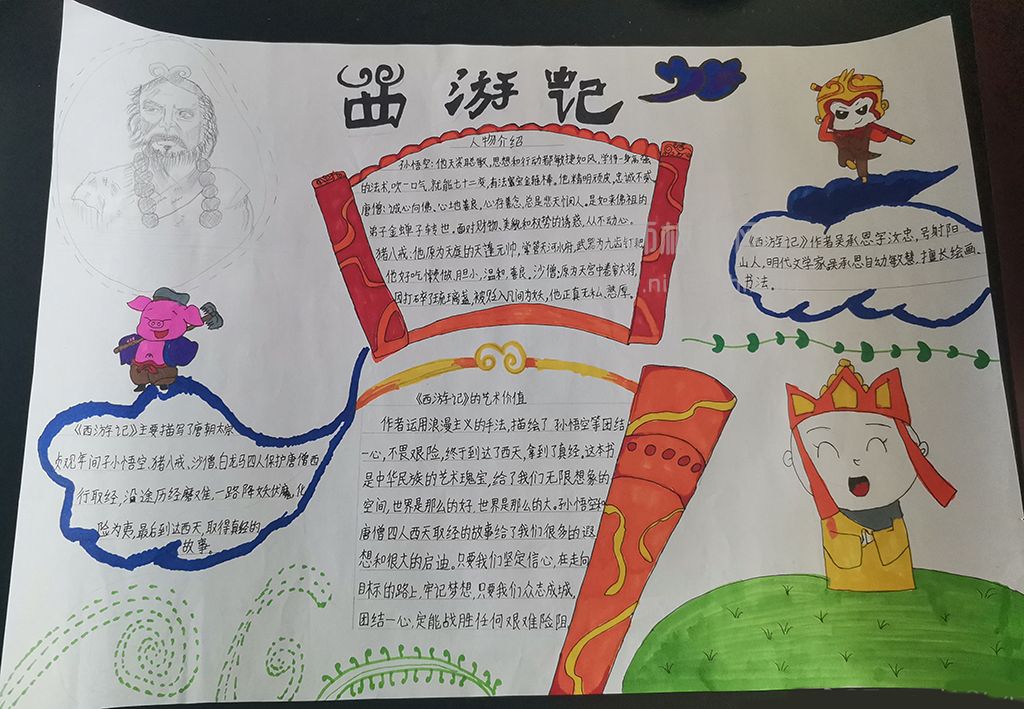 西游记
人物介绍
孙悟空:他天资聪敏,思想和行动都敏捷如风,学得一身高强
的法术,吹一口气,就能七十二变,有法宝金箍棒。他精明顽皮,忠诚不贰。
唐僧:诚心向佛、心地善良,心存善念,总是悲天悯人。是如来佛祖的
弟子金蝉子转世。面对财物、美貌和权势的诱惑,从不动心。
猪八戒:他原为天庭的天蓬元帅,掌管天河水府,武器为九齿钉耙
他好吃懒做,胆小,温和,善良。沙僧:原为天宫中卷帘大将,
因打碎了琉璃盏,被贬入凡间为妖,他正直无私、憨厚。
《西游记》作者吴承恩字汝忠,号射阳
山人,明代文学家吴承恩自幼敏慧,擅长绘画、
书法。
《西游记》主要描写了唐朝太宗
贞观年间孙悟空、猪八戒、沙僧、白龙马四人保护唐僧西
行取经,沿途历经磨难,一路降妖伏魔,化
险为夷,最后到达西天,取得真经的
故事。
《西游记》的艺术价值
作者运用浪漫主义的手法,描绘了孙悟空等团结
一心,不畏艰险,终于到达了西天,拿到了真经,这本书
是中华民族的艺术瑰宝,给了我们无限想象的
空间,世界是那么的好,世界是那么的大。孙悟空和
唐僧四人西天取经的故事给了我们很多的遐
想和很大的启迪。只要我们坚定信心,在走向
目标的路上,牢记梦想,只要我们众志成城,
团结一心,定能战胜任何艰难险阻。